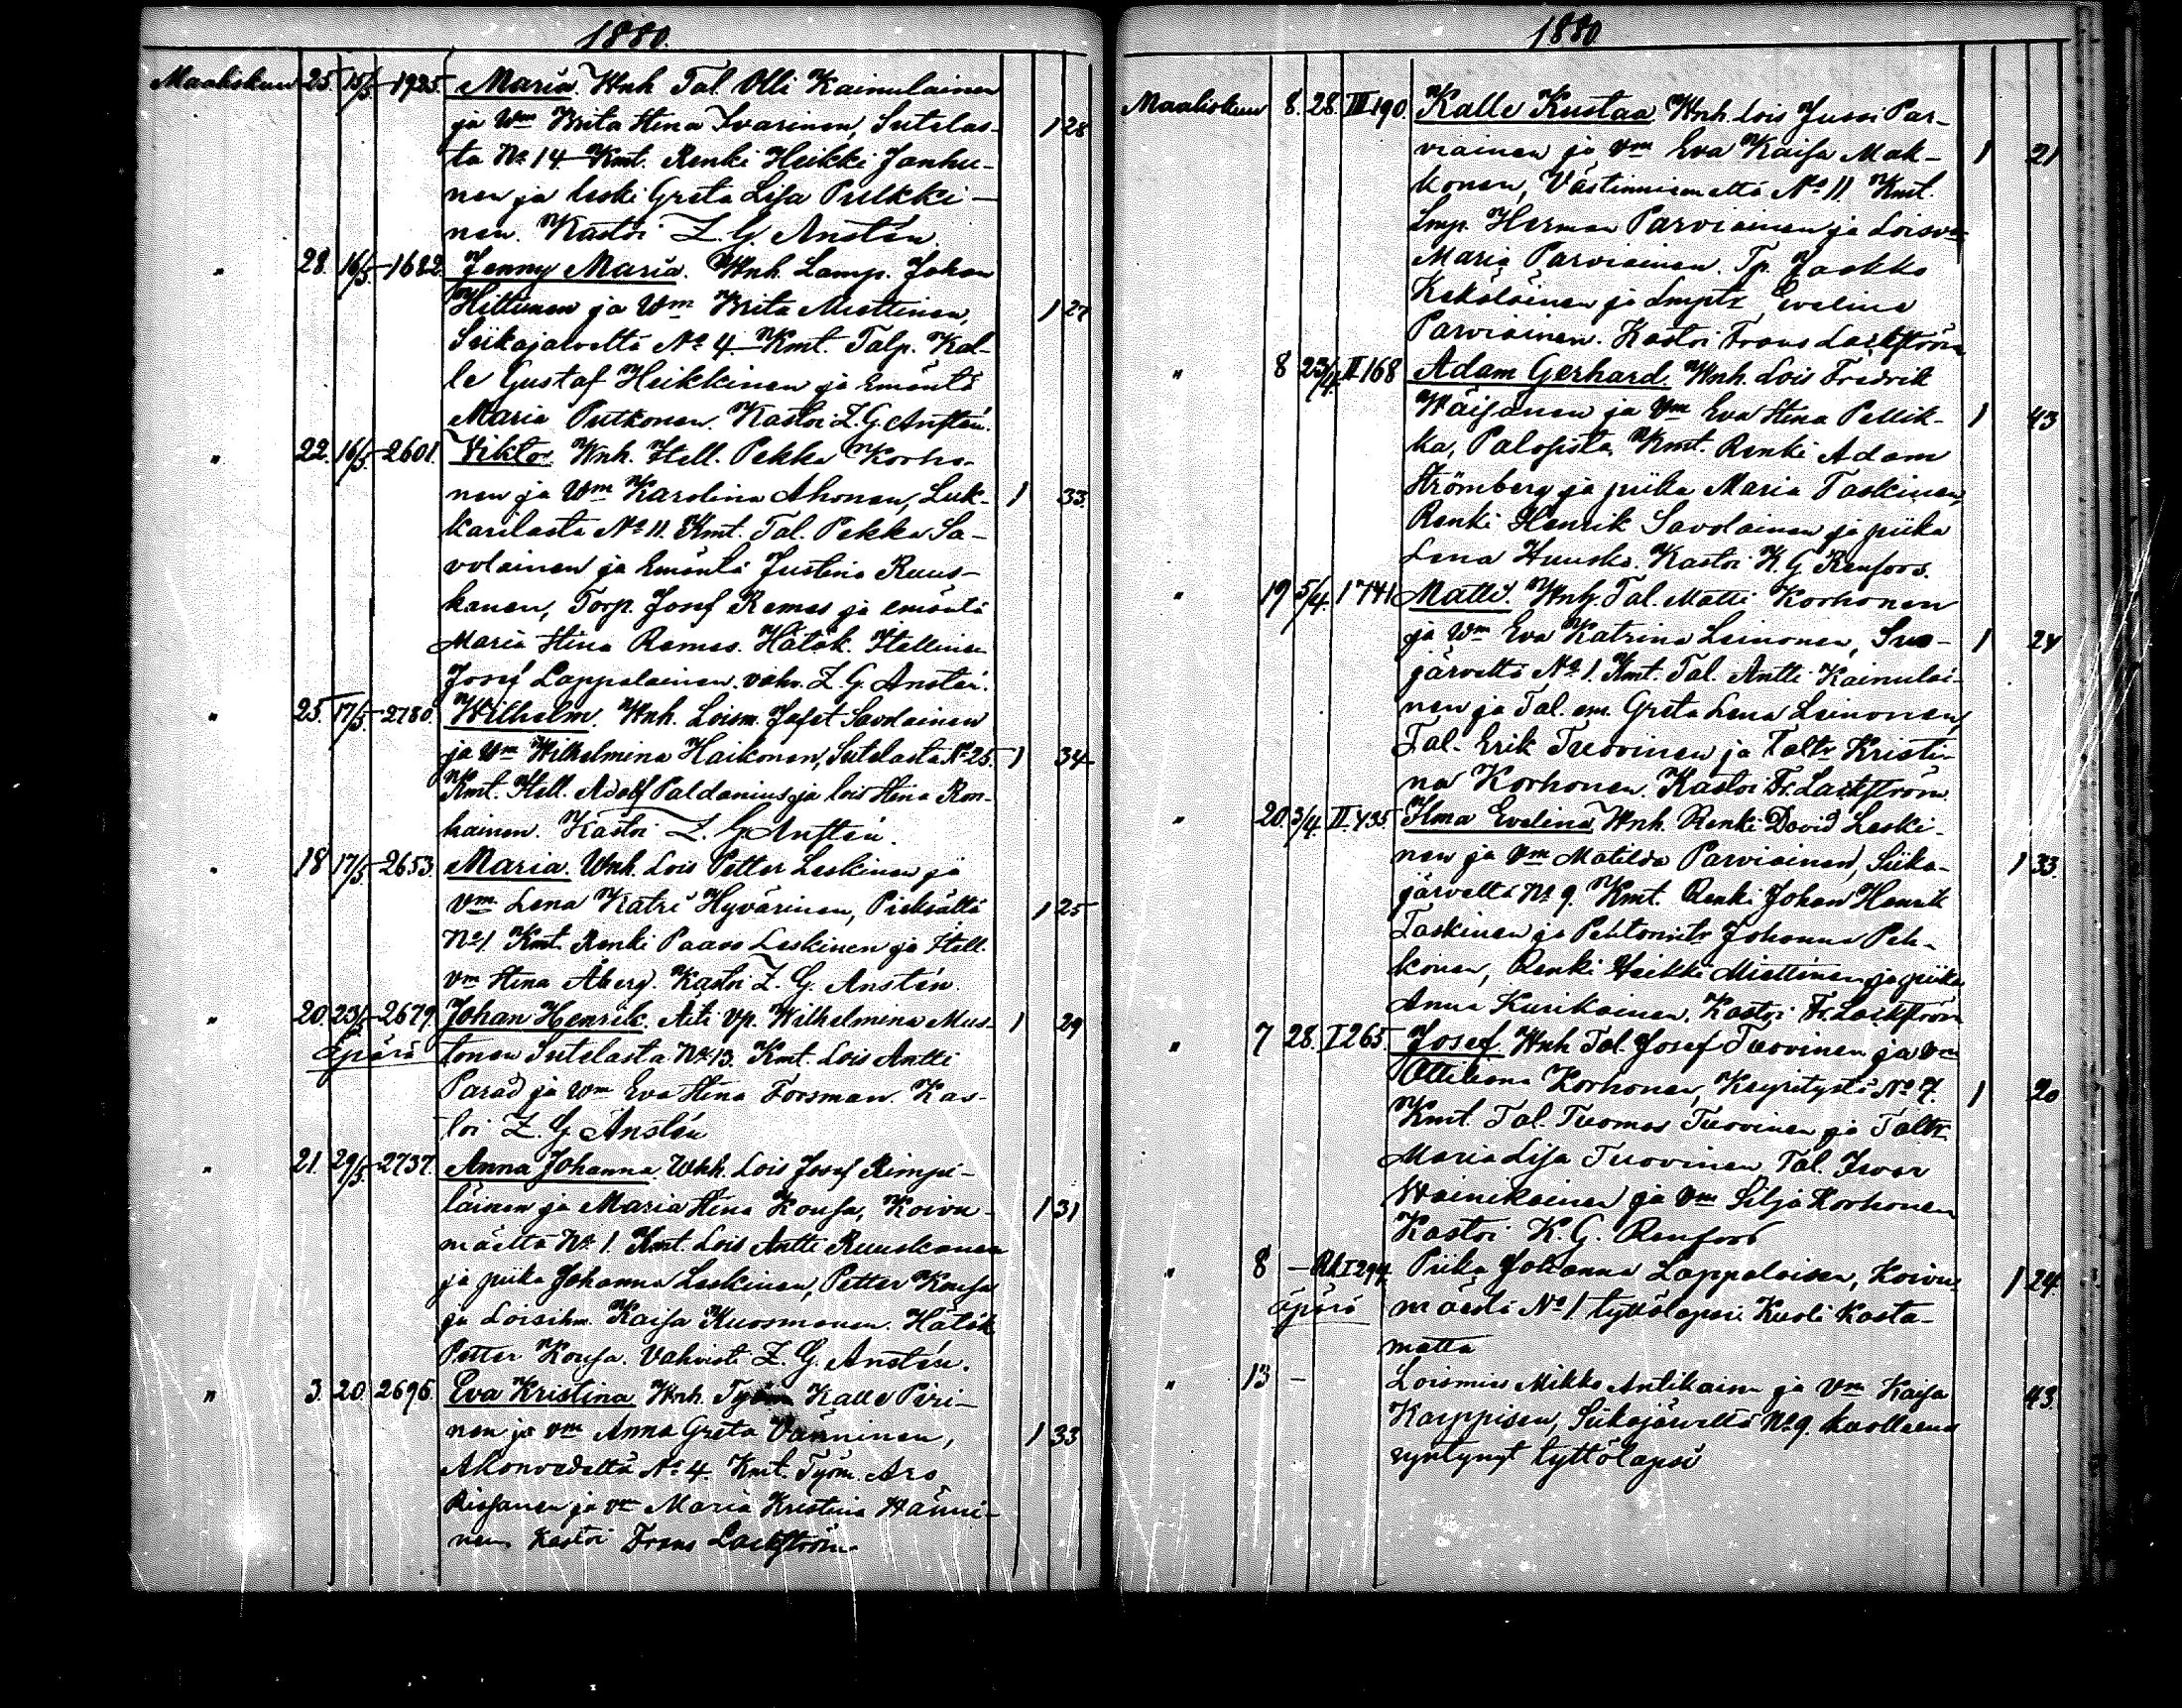 1880.
Maaliskuu 25. 15/5. 1925. Maria. Wnh. Tal. Olli Kainulainen
ja Wm Brita Stina Ivarinen, Sutelas- 1 28
ta No 14 Kmt. Renki Heikki Janhu-
nen ja leski Greta Lisa Pulkki-
nen. Kastoi Z. G. Anstén.
" 28. 16/5. 1682 Jenny Maria. Wnh. Lamp. Johan
Hiltunen ja Wm Brita Miettinen, 1 27
Siikajärveltä No 4. Kmt. Talp. Kal-
le Gustaf Heikkinen ja Emäntä
Maria Putkonen. Kastoi Z. G. Anstén.
" 22. 16/5. 2601. Viktor Wnh. Itell. Pekka Korho-
nen ja Wm Karolina Ahonen, Luk- 1 33.
karilasta No 11. Kmt. Tal. Pekka Sa-
volainen ja Emäntä Justina Ruus-
kanen, Torp. Josef Remes ja emäntä
Maria Stina Remes. Hätäk. Itellinen
Josef Lappalainen. vahv. Z. G. Anstén.
" 25. 17/5. 2780. Wilhelm. Wnh. Loism. Jafet Savolainen
ja Wm Wilhelmina Haikonen, Sutelasta No 25. 1 34
Kmt. Itell. Adolf Paldanius ja lois Stina Ron-
kainen. Kastoi Z. G. Anstén.
" 18 17/5. 2653. Maria. Wnh. Lois Petter Leskinen ja
Vm Lena Katri Hyvärinen, 1 25
No 1 Kmt. Renki Paavo Leskinen ja Itell.
vm Stina Åberg. Kastoi Z. G. Anstén.
" 20. 23/5. 2679. Johan Henrik. Äiti vp. Wilhelmina Mus- 1 29
äpärä tonen Sutelasta No 13. Kmt. Lois Antti
Parad ja Wm Eva Stina Forsman. Kas-
toi Z. G. Anstén
" 21. 29/5. 2737. Anna Johanna. Wnh. Lois Josef Rimpi-
läinen ja Maria Stina Kousa, Koivu- 1 31
mäeltä No 1. Kmt. Lois Antti Ruuskanen
ja piika Johanna Leskinen, Petter Kousa
ja Loisihm. Kaisa Kuosmanen. Hätäk.
Petter Kousa. Vahvisti Z. G. Anstén.
" 3. 20. 2696. Eva Kristina Wnh. Työm Kalle Piri-
nen ja vm Anna Greta Vänninen, 1 33
Akonvedeltä No 4. Kmt. Työm. Aro
Rissanen ja vm Maria Kristina Hänni-
nen Kastoi Frans Lackström
1880
Maaliskuu 8. 28. III 190. Kalle Kustaa Wnh. Lois Jussi Par-
viainen ja vm Eva Kaisa Mak- 1 21
konen, Västinniemeltä No 11. Kmt.
Lmp. Herman Parviainen ja Loisvm
Maria Parviainen. Tp. Jaakko
Kekäläinen ja Lmptr Eveline
Parviainen. Kastoi Frans Lackström
" 8 23/4. II 168 Adam Gerhard. Wnh. Lois Fredrik
Wäisänen ja Vm Eva Stina Pellik- 1 43
ka, Palosista. Kmt. Renki Adam
Strömberg ja piika Maria Taskinen,
Renki Henrik Savolainen ja piika
Lena Huusko. Kastoi K. G. Renfors.
" 19 5/4. 1741 Matti. Wnh. Tal. Matti Korhonen
ja Wm Eva Katrina Leinonen, Suo- 1 24
järveltä No 1. Kmt. Tal. Antti Kainulai-
nen ja Tal. em. Greta Lena Leinonen,
Tal. Erik Tuovinen ja Taltr Kristi-
na Korhonen. Kastoi Fr. Lackström.
" 20. 3/4. II. 435. Ilma Evelina Wnh. Renki David Leski-
nen ja Vm Matilda Parviainen, Siika- 1 33.
järveltä No 9. Kmt. Renki Johan Henrik
Taskinen ja Pehtorintr Johanna Peh-
konen, Renki Heikki Miettinen ja piika
Anna Kurikainen. Kastoi Fr. Lackström
" 7 28. I 265. Josef Wnh Tal. Josef Tuovinen ja vm
Korhonen, No 7. 1 20
Kmt. Tal. Tuomas Tuovinen ja Taltr
Maria Lisa Tuovinen, Tal. Iivar
Wainikainen ja vm Silja Korhonen
Kastoi K. G. Renfors
" 8 — I 294. Piika Johanna Lappalaisen, Koivu- 1 24.
äpärä mäestä No 1 tyttölapsi. Kuoli kasta-
matta
" 13 — Loismies Mikko Antikaisen ja Vm Kaisa 43.
Karppisen, Siikajärveltä No 9. kuolleena
syntynyt tyttölapsi